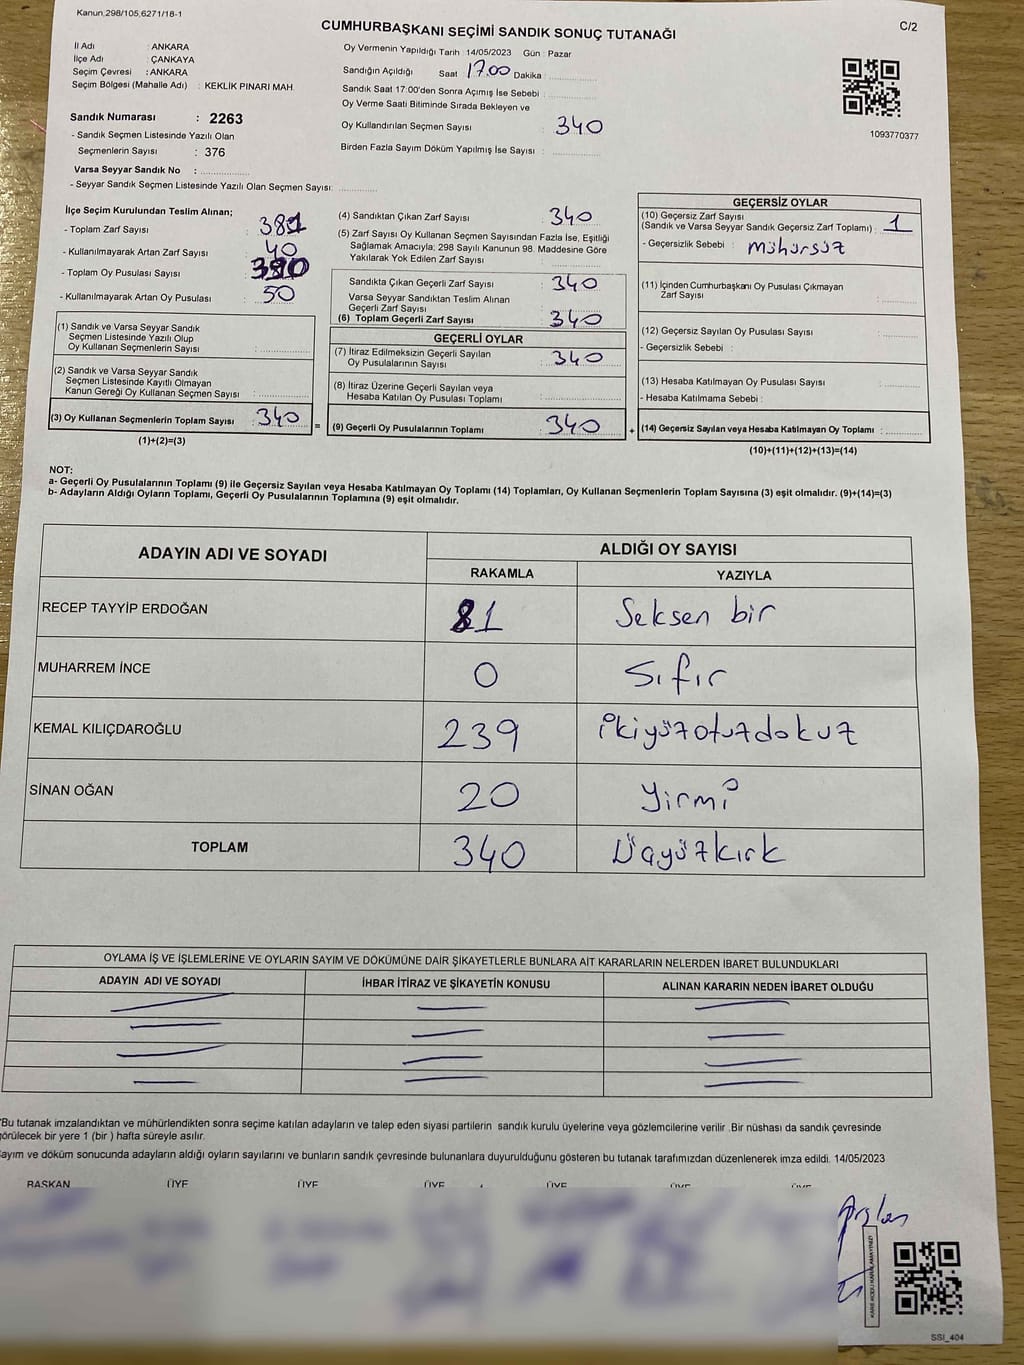 Kanun,298/105,6271/18-1
CUMHURBAŞKANI SEÇİMİ SANDIK SONUÇ TUTANAĞI
C/2
İl Adı : ANKARA
İlçe Adı : ÇANKAYA
Seçim Çevresi : ANKARA
Seçim Bölgesi (Mahalle Adı) : KEKLİK PINARI MAH.
Sandık Numarası : 2263
- Sandık Seçmen Listesinde Yazılı Olan
Seçmenlerin Sayısı : 376
Varsa Seyyar Sandık No :
- Seyyar Sandık Seçmen Listesinde Yazılı Olan Seçmen Sayısı:
Oy Vermenin Yapıldığı Tarih : 14/05/2023 Gün : Pazar
Sandığın Açıldığı Saat 17.00 Dakika :
Sandık Saat 17:00'den Sonra Açımış İse Sebebi :
Oy Verme Saati Bitiminde Sırada Bekleyen ve
Oy Kullandırılan Seçmen Sayısı : 340
Birden Fazla Sayım Döküm Yapılmış İse Sayısı :
1093770377
İlçe Seçim Kurulundan Teslim Alınan;
- Toplam Zarf Sayısı : 381
- Kullanılmayarak Artan Zarf Sayısı : 40
- Toplam Oy Pusulası Sayısı : 390
- Kullanılmayarak Artan Oy Pusulası : 50
(1) Sandık ve Varsa Seyyar Sandık
Seçmen Listesinde Yazılı Olup
Oy Kullanan Seçmenlerin Sayısı :
(2) Sandık ve Varsa Seyyar Sandık
Seçmen Listesinde Kayıtlı Olmayan
Kanun Gereği Oy Kullanan Seçmen Sayısı :
(3) Oy Kullanan Seçmenlerin Toplam Sayısı : 340
(1)+(2)=(3)
=
(4) Sandıktan Çıkan Zarf Sayısı : 340
(5) Zarf Sayısı Oy Kullanan Seçmen Sayısından Fazla İse, Eşitliği
Sağlamak Amacıyla; 298 Sayılı Kanunun 98. Maddesine Göre
Yakılarak Yok Edilen Zarf Sayısı :
Sandıkta Çıkan Geçerli Zarf Sayısı : 340
Varsa Seyyar Sandıktan Teslim Alınan
Geçerli Zarf Sayısı :
(6) Toplam Geçerli Zarf Sayısı : 340
GEÇERLİ OYLAR
(7) İtiraz Edilmeksizin Geçerli Sayılan
Oy Pusulalarının Sayısı : 340
(8) İtiraz Üzerine Geçerli Sayılan veya
Hesaba Katılan Oy Pusulası Toplamı :
(9) Geçerli Oy Pusulalarının Toplamı : 340
+
GEÇERSİZ OYLAR
(10) Geçersiz Zarf Sayısı
(Sandık ve Varsa Seyyar Sandık Geçersiz Zarf Toplamı) : 1
- Geçersizlik Sebebi : mühürsüz
(11) İçinden Cumhurbaşkanı Oy Pusulası Çıkmayan
Zarf Sayısı :
(12) Geçersiz Sayılan Oy Pusulası Sayısı :
- Geçersizlik Sebebi :
(13) Hesaba Katılmayan Oy Pusulası Sayısı :
- Hesaba Katılmama Sebebi :
(14) Geçersiz Sayılan veya Hesaba Katılmayan Oy Toplamı :
(10)+(11)+(12)+(13)=(14)
NOT:
a- Geçerli Oy Pusulalarının Toplamı (9) ile Geçersiz Sayılan veya Hesaba Katılmayan Oy Toplamı (14) Toplamları, Oy Kullanan Seçmenlerin Toplam Sayısına (3) eşit olmalıdır. (9)+(14)=(3)
b- Adayların Aldığı Oyların Toplamı, Geçerli Oy Pusulalarının Toplamına (9) eşit olmalıdır.
ADAYIN ADI VE SOYADI ALDIĞI OY SAYISI
RAKAMLA YAZIYLA
RECEP TAYYİP ERDOĞAN 81 Seksen bir
MUHARREM İNCE 0 Sıfır
KEMAL KILIÇDAROĞLU 239 ikiyüzotuzdokuz
SİNAN OĞAN 20 Yirmi
TOPLAM 340 Üçyüzkırk
OYLAMA İŞ VE İŞLEMLERİNE VE OYLARIN SAYIM VE DÖKÜMÜNE DAİR ŞİKAYETLERLE BUNLARA AİT KARARLARIN NELERDEN İBARET BULUNDUKLARI
ADAYIN ADI VE SOYADI İHBAR İTİRAZ VE ŞİKAYETİN KONUSU ALINAN KARARIN NEDEN İBARET OLDUĞU
*Bu tutanak imzalandıktan ve mühürlendikten sonra seçime katılan adayların ve talep eden siyasi partilerin sandık kurulu üyelerine veya gözlemcilerine verilir .Bir nüshası da sandık çevresinde
görülecek bir yere 1 (bir ) hafta süreyle asılır.
Sayım ve döküm sonucunda adayların aldığı oyların sayılarını ve bunların sandık çevresinde bulunanlara duyurulduğunu gösteren bu tutanak tarafımızdan düzenlenerek imza edildi. 14/05/2023
BAŞKAN ÜYE ÜYE ÜYE ÜYE ÜYE ÜYE
Arslan
KARE KODU KARALAMAYINIZ!
SSI_404